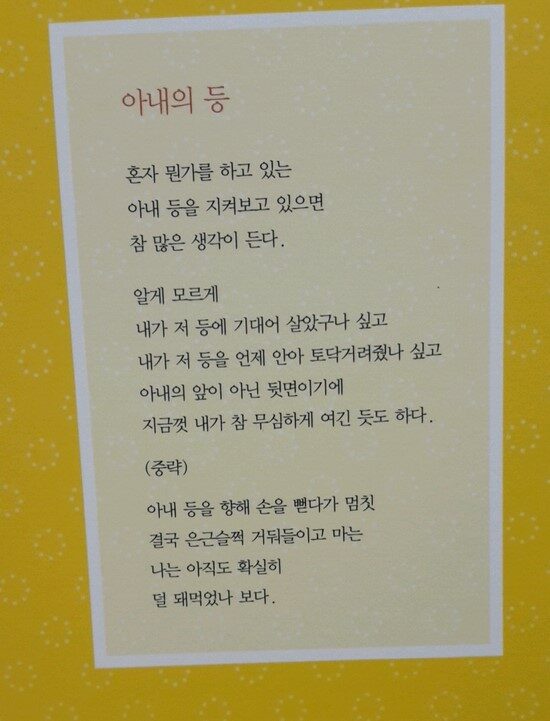 아내의 등
혼자 뭔가를 하고 있는
아내 등을 지켜보고 있으면
참 많은 생각이 든다.
알게 모르게
내가 저 등에 기대어 살았구나 싶고
내가 저 등을 언제 안아 토닥거려줬나 싶고
아내의 앞이 아닌 뒷면이기에
지금껏 내가 참 무심하게 여긴 듯도 하다.
(중략)
아내 등을 향해 손을 뻗다가 멈칫
결국 은근슬쩍 거둬들이고 마는
나는 아직도 확실히
덜 돼먹었나 보다.